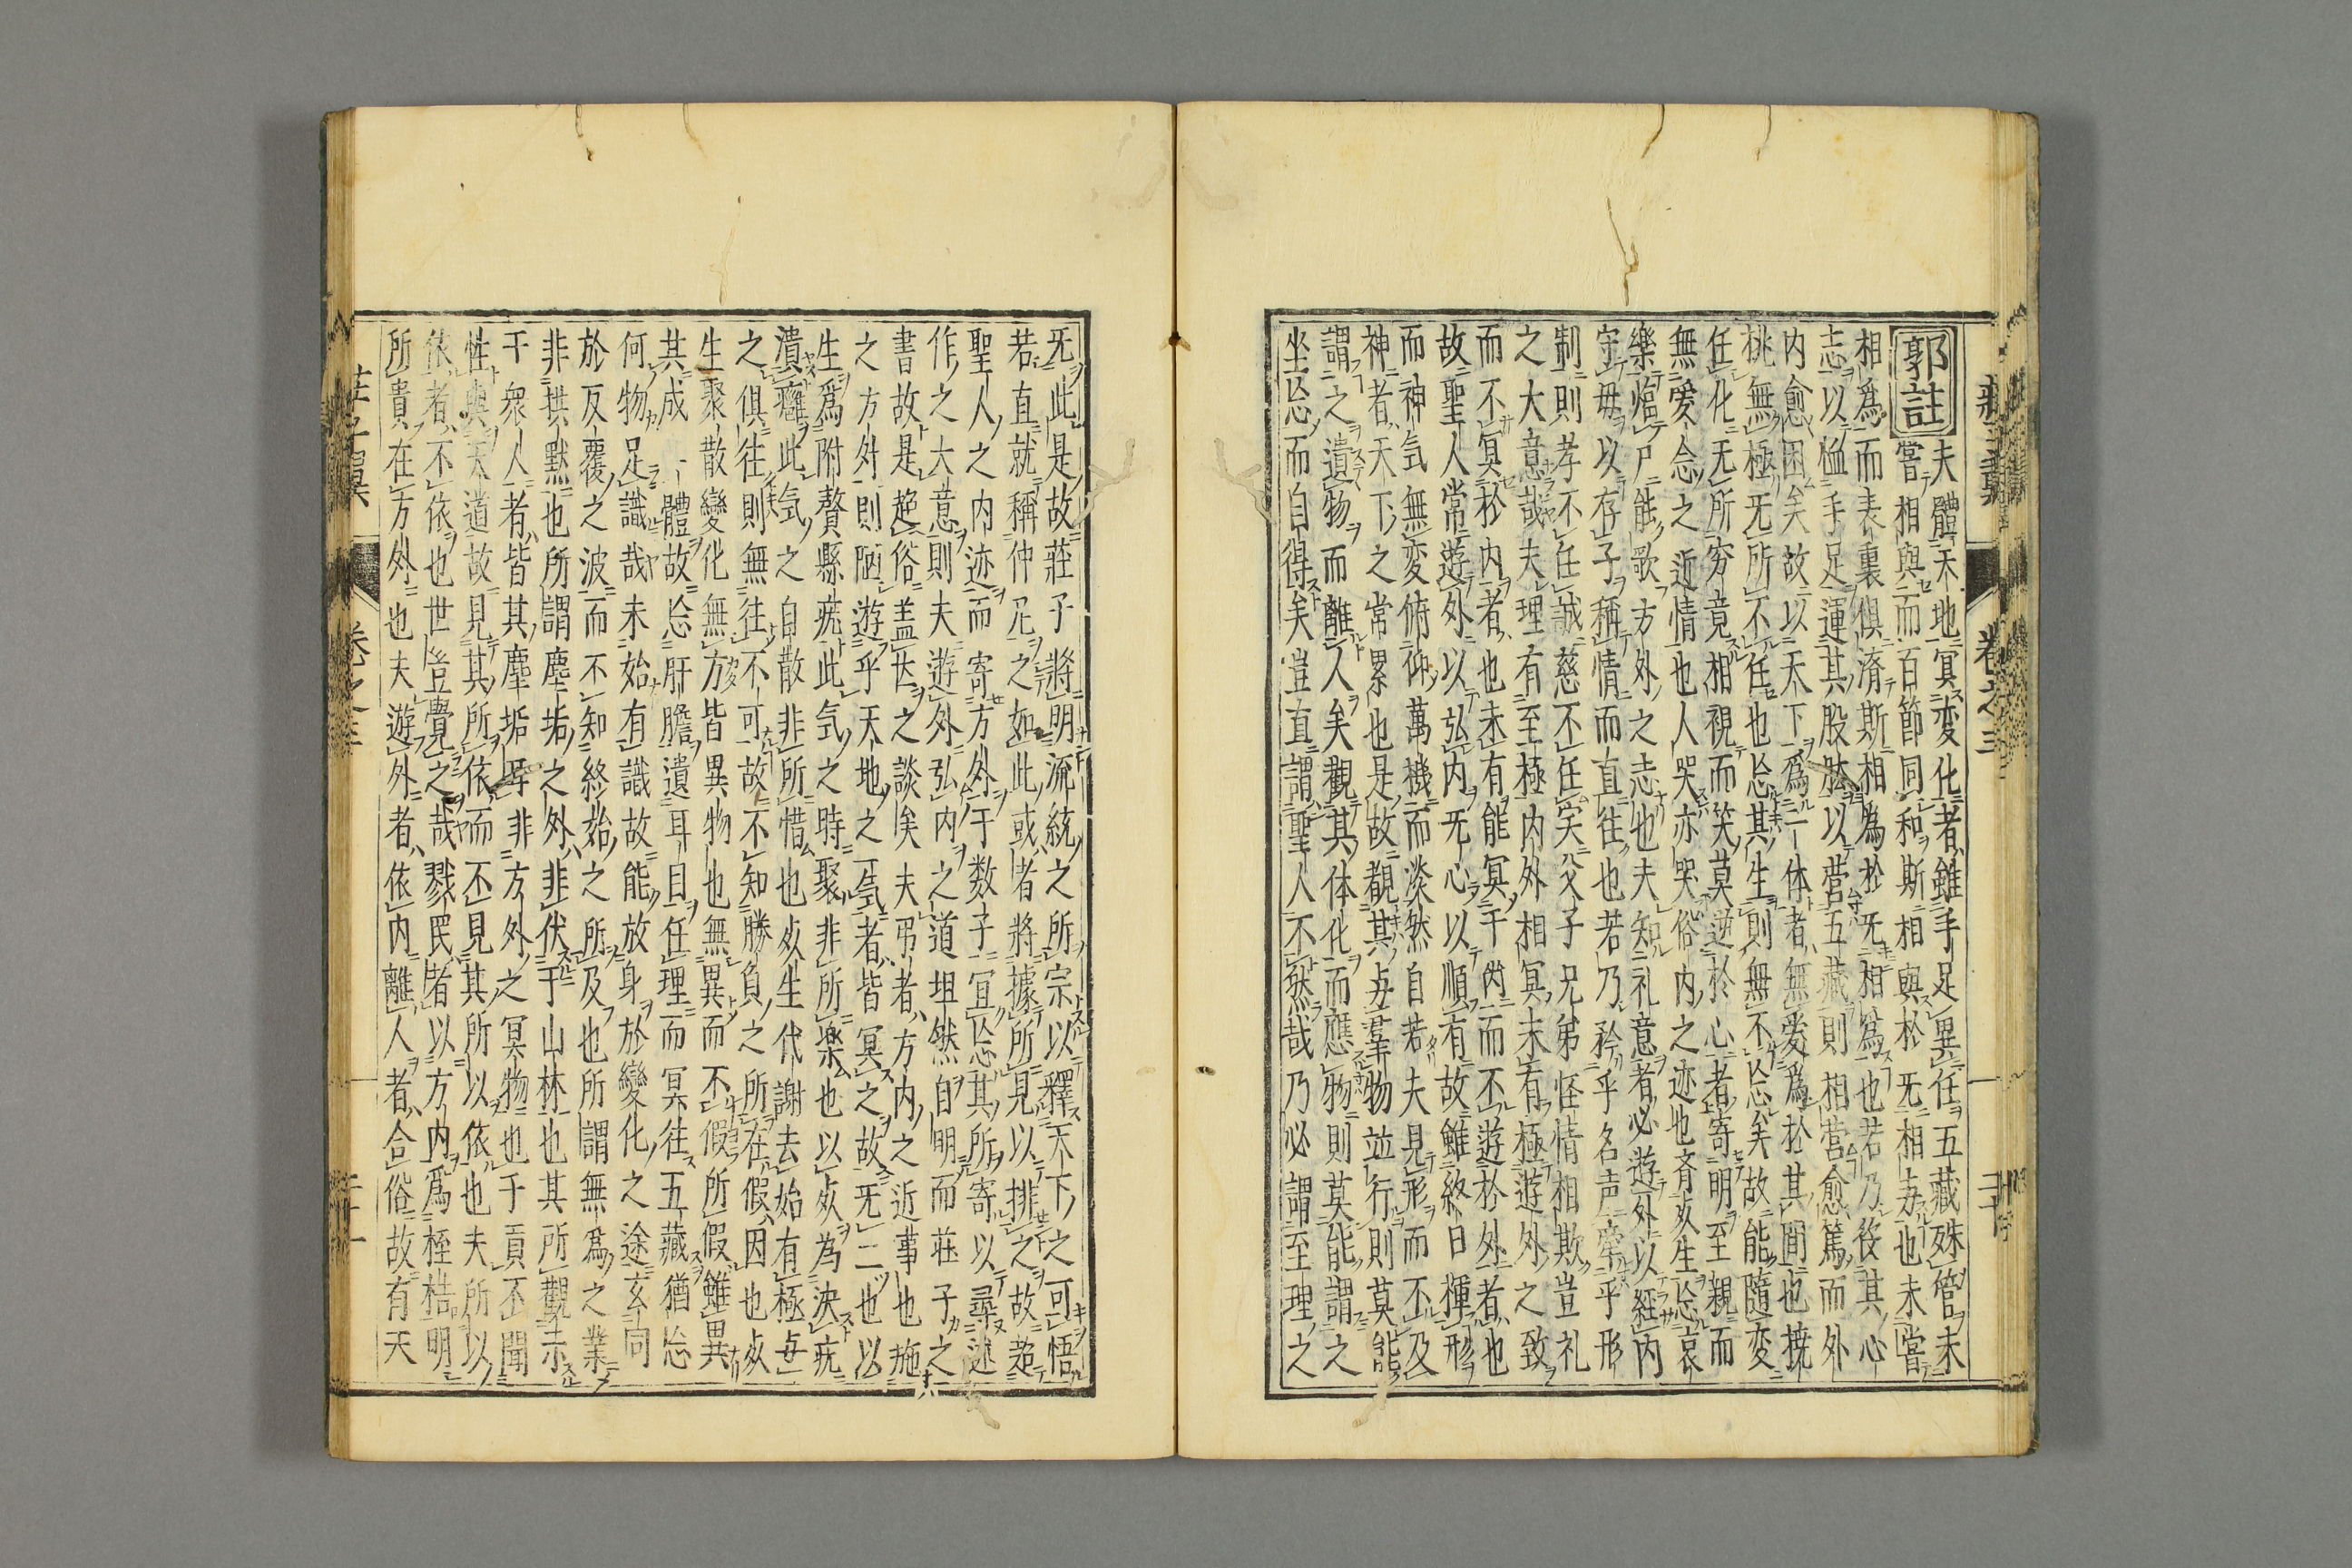 莊子翼 卷之三 二十
郭註
夫體天地冥変化者雖手足異任五藏殊管未
嘗相與而百節同和斯相與於无相与也未嘗
相爲而表裏俱済斯相爲於无相爲也若乃役其心
志以恤手足運其股肱以営五藏則相営愈篤而外
内愈困矣故以天下爲一体者無爱爲於其間也撓
挑無極无所不任也忘其生則無不忘矣故能隨変
任化无所穷竟相視而笑莫逆於心者寄明至親而
無爱念之近情也人哭亦哭俗内之迹也斉死生忘哀
樂臨尸能歌方外之志也夫知礼意者必遊外以経内
守母以存子稱情而直往也若乃矜乎名声牽乎形
制則孝不任誠慈不任実父子兄弟怪情相欺豈礼
之大意哉夫理有至極内外相冥未有極遊外之致
而不冥於内者也未有能冥于内而不遊於外者也
故聖人常遊外以弘内无心以順有故雖終日揮形
而神気無変俯仰萬機而淡然自若夫見形而不及
神者天下之常累也是故覩其与羣物並行則莫能
謂之遺物而離人矣觀其体化而應物則莫能謂之
坐忘而自得矣豈直謂聖人不然哉乃必謂至理之
无此是故莊子將明流統之所宗以釋天下之可悟
若直就稱仲尼之如此或者將據所見以排之故超
聖人之内迹而寄方外于数子宜忘其所寄以尋述
作之大意則夫遊外弘内之道坦然自明而莊子之
書故是超俗盖世之談矣夫弔者方内之近事也施
之方外則陋遊乎天地之一気者皆冥之故无二也以
生爲附贅縣疣此気之時聚非所楽也以死為決疣
潰癰此気之自散非所惜也死生代謝去始有極与
之俱往則無往不可故不知勝負之所在假因也死
生聚散變化無方皆異物也無異而不假所假雖異
其成一體故忘肝膽遺耳目任理而冥往五藏猶忘
何物足識哉未始有識故能放身於變化之途玄同
於反覆之波而不知終始之所及也所謂無爲之業
非拱默也所謂塵垢之外非伏于山林也其所觀示
于衆人者皆其塵垢耳非方外之冥物也子貢不聞
性與天道故見其所依而不見其所以依也夫所以
依者不依也世豈覺之哉戮民者以方内爲桎梏明
所貴在方外也夫遊外者依内離人者合俗故有天
莊子翼 卷之三 二十一